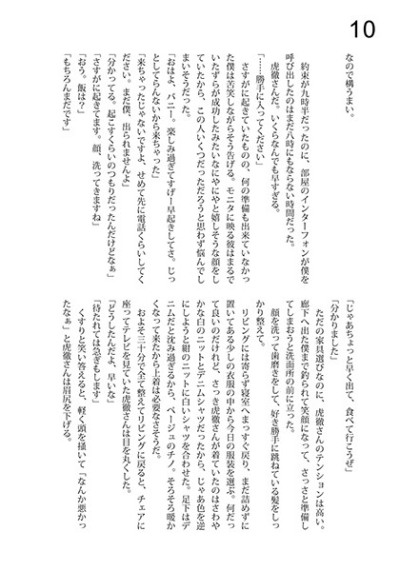 10
なので構うまい。
約束が九時半だったのに、部屋のインターフォンが僕を
呼び出したのはまだ八時にもならない時間だった。
虎徹さんだ。いくらなんでも早すぎる。
「……勝手に入ってください」
さすがに起きていたものの、何の準備も出来ていなかっ
た僕は苦笑しながらそう告げる。モニタに映る彼はまるで
いたずらが成功したみたいなにやにやと嬉しそうな顔をし
ていたから、この人いくつだっただろうと思わず悩んでし
まいそうだった。
「おはよ、バニー。楽しみ過ぎてすげー早起きしてさ。じっ
としてらんないから来ちゃった」
「来ちゃったじゃないですよ、せめて先に電話くらいしてく
ださい。まだ僕、出られませんよ」
「分かってる。起こすくらいのつもりだったんだけどなぁ」
「さすがに起きてます。顔、洗ってきますね」
「おう。飯は？」
「もちろんまだです」
「じゃあちょっと早く出て、食べて行こうぜ」
「分かりました」
ただの家具選びなのに、虎徹さんのテンションは高い。
廊下へ出た僕まで釣られて笑顔になって、さっさと準備し
てしまおうと洗面所の前に立った。
顔を洗って歯磨きをして、好き勝手に跳ねている髪をしっ
かり整えて。
リビングには寄らず寝室へまっすぐ戻り、まだ詰めずに
置いてある少しの衣服の中から今日の服装を選ぶ。何だっ
て良いのだけれど、さっき虎徹さんが着ていたのはさわや
かな白のニットとデニムシャツだったから、じゃあ色を逆
にしようと紺のニットに白いシャツを合わせた。足下はデ
ニムだと沈み過ぎるから、ベージュのチノ。そろそろ暖か
くなって来たから上着は必要なさそうだ。
およそ三十分で全て整えてリビングに戻ると、チェアに
座ってテレビを見ていた虎徹さんは目を丸くした。
「どうしたんだよ、早いな」
「待たれては急ぎもします」
くすりと笑い答えると、軽く頭を掻いて「なんか悪かっ
たなぁ」と虎徹さんは眉尻を下げる。